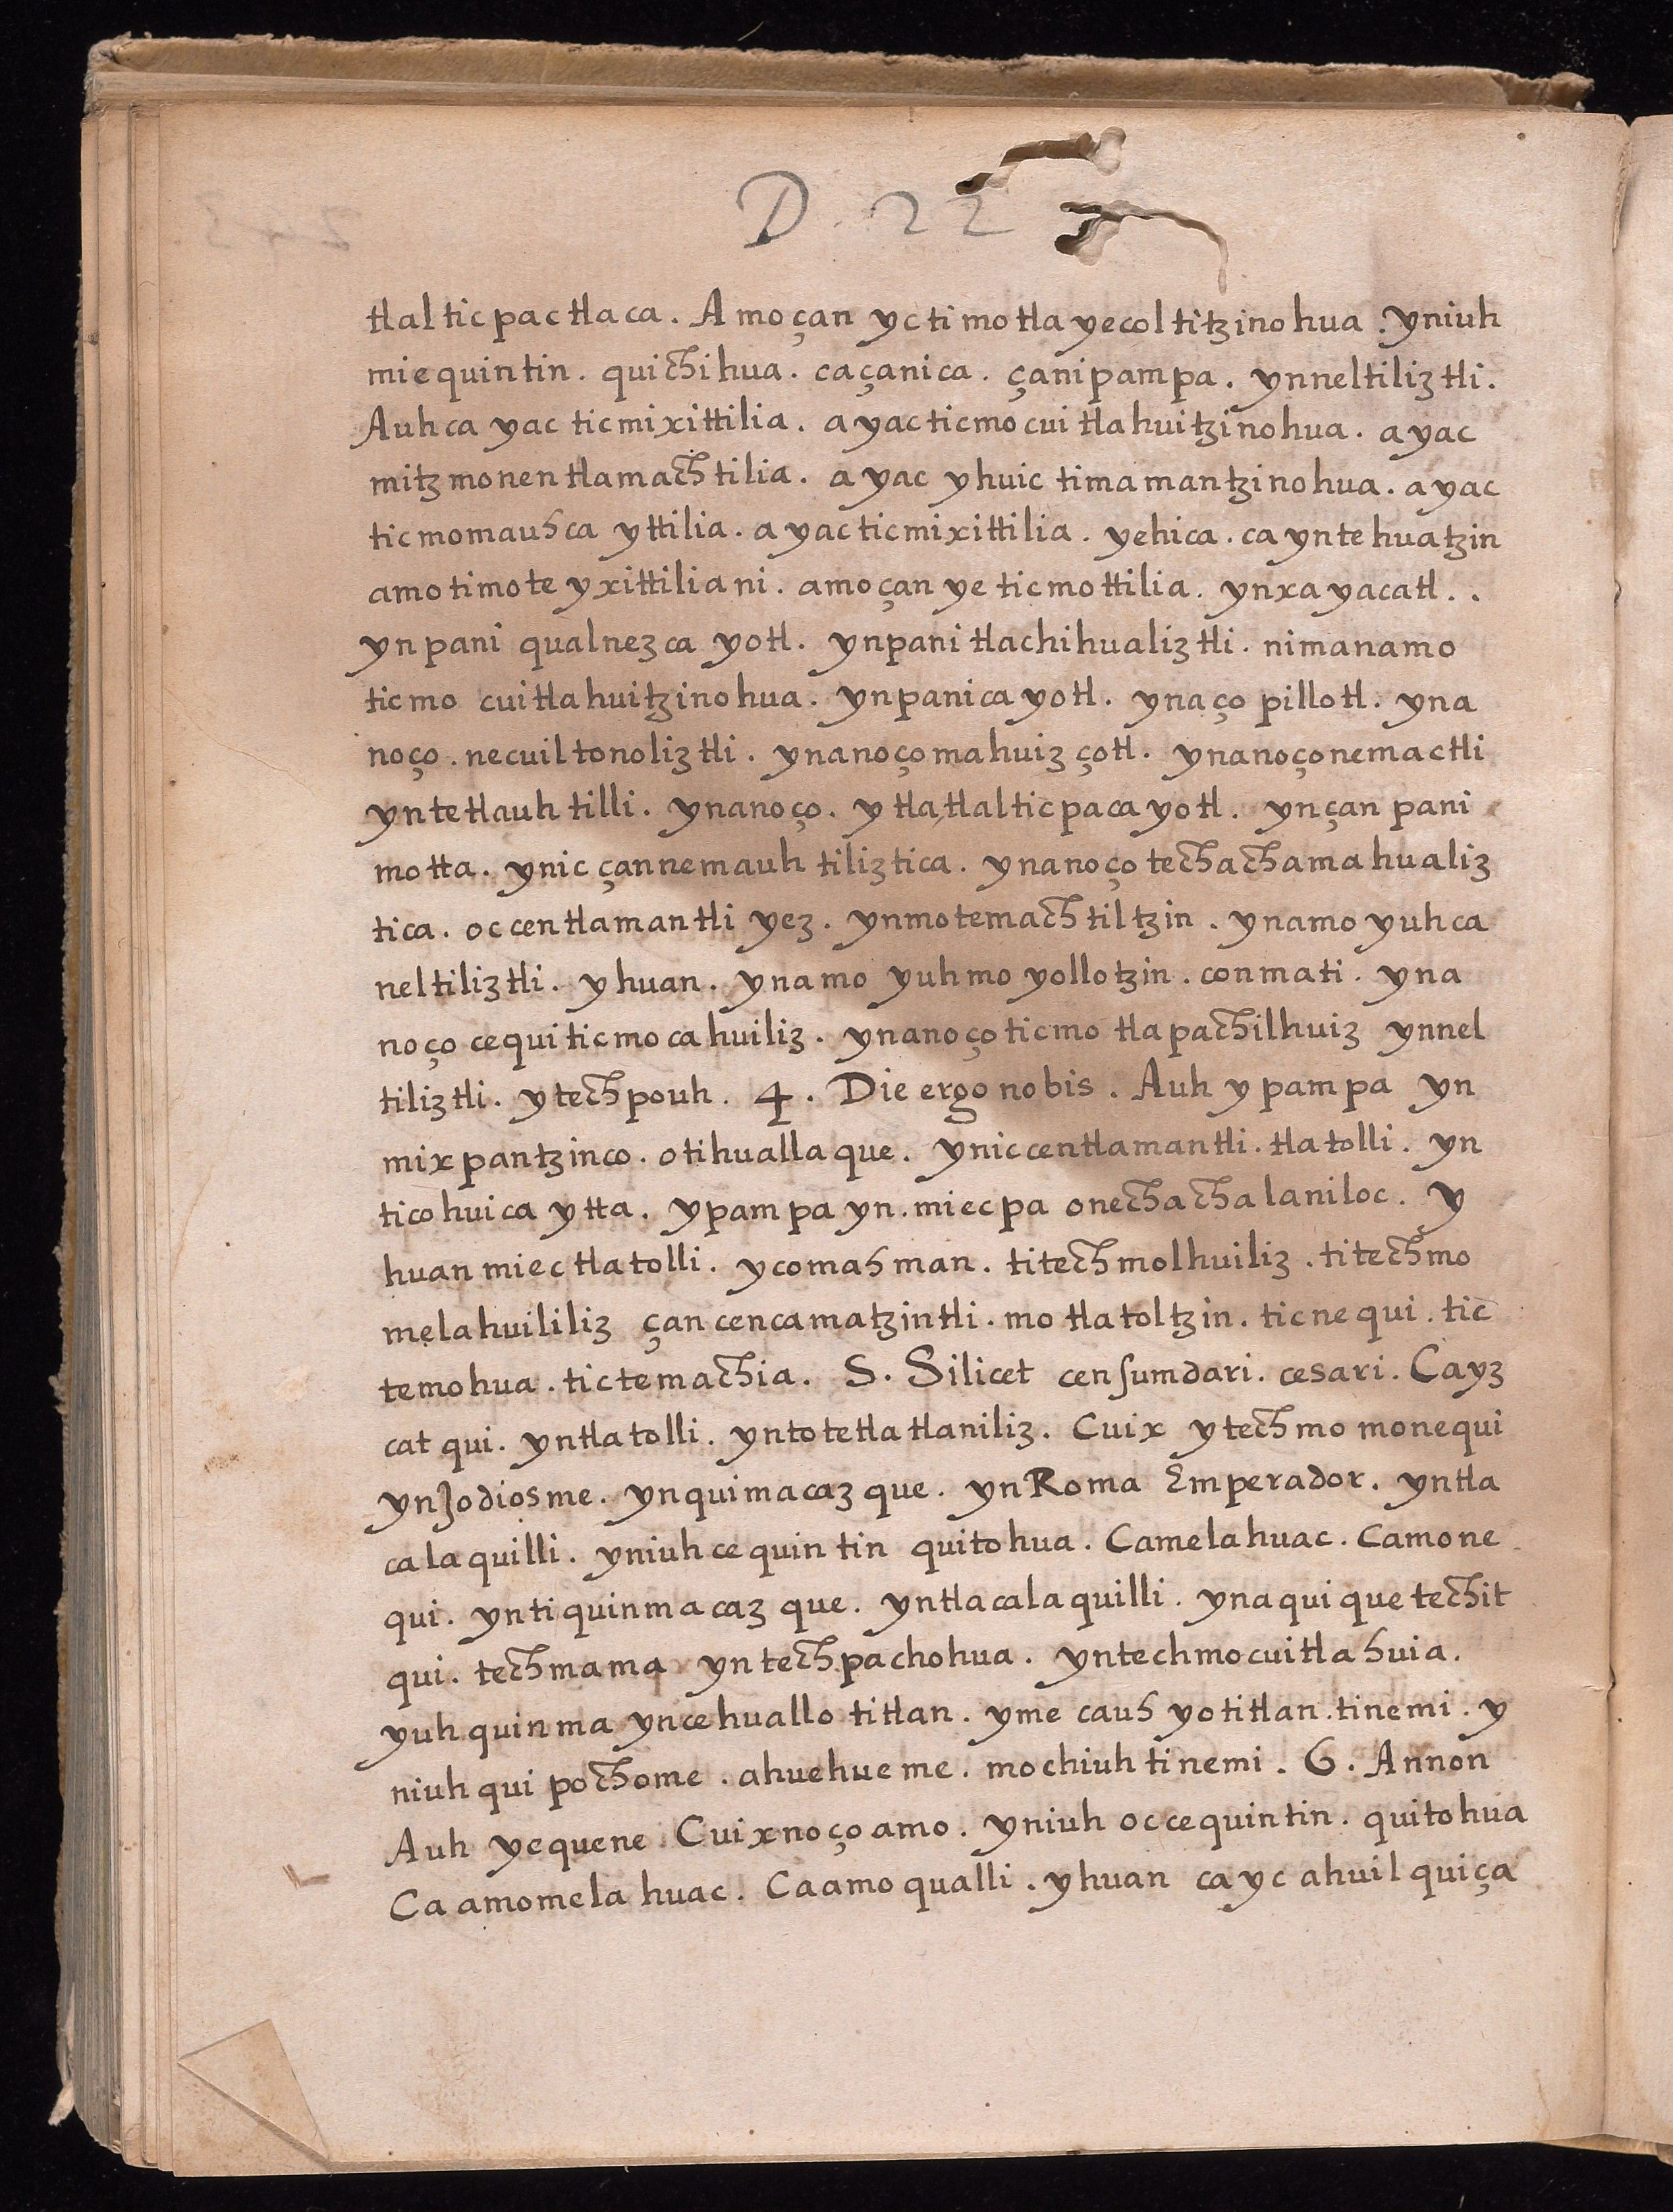 D. 22
tlalticpactlaca. Amoçan yc timotlayecoltitzinohua. yniuh
miequintin. quichihua. caçanica. çanipampa. ynneltiliztli.
Auhca yac ticmixittilia. ayac ticmocuitlahuitzinohua. ayac
mitzmonentlamachtilia. ayac yhuic timamantzinohua. ayac
ticmomauhca yttilia. ayac ticmixittilia. yehica. ca yntehuatzin
amo timoteyxittiliani. amoçan ye ticmottilia. ynxayacatl..
ynpani qualnezcayotl. ynpani tlachihualiztli. nimanamo
ticmo cuitlahuitzinohua. ynpanicayotl. ynaçopillotl. yna
noço. necuiltonoliztli. ynanoço mahuizçotl. ynanoço nemactli
yntetlauhtilli. ynanoço. ytlatlalticpacayotl. ynçan pani
motta. ynic çannemauhtiliztica. ynanoço techachamahualiz
tica. occentlamantli yez. ynmotemachtiltzin. ynamo yuhca
neltiliztli. yhuan. ynamo yuh moyollotzin. conmati. yna
noço cequi ticmocahuiliz. ynanoço ticmotlapachilhuiz ynnel
tiliztli. ytechpouh. 4. Die ergo nobis. Auh ypampa yn
mixpantzinco. otihuallaque. yniccentlamantli. tlatolli. yn
ticohuica ytta. ypampa yn. miecpa onechachalaniloc. y
huan miec tlatolli. ycomahman. titechmolhuiliz. titechmo
melahuililiz çan cencamatzintli. motlatoltzin. ticnequi. tic
temohua. tictemachia. S. Silicet censum dari. cesari. Cayz
catqui. yntlatolli. yntotetlatlaniliz. Cuix ytechmo monequi
ynJodiosme. ynquimacazque. ynRoma Emperador. yntla
calaquilli. yniuh cequintin quitohua. Camelahuac. Camone
qui. yntiquinmacazque. yntlacalaquilli. ynaquique techit
qui. techmama yntechpachohua. yntechmocuitlahuia.
yuhquinma yncehuallotitlan. ymecauhyotitlan. tinemi. y
niuhqui pochome. ahuehueme. mochiuhtinemi. 6. Annon
Auh yequene Cuixnoço amo. yniuh occequintin. quitohua
Ca amomelahuac. Caamo qualli. yhuan ca yc ahuilquiça